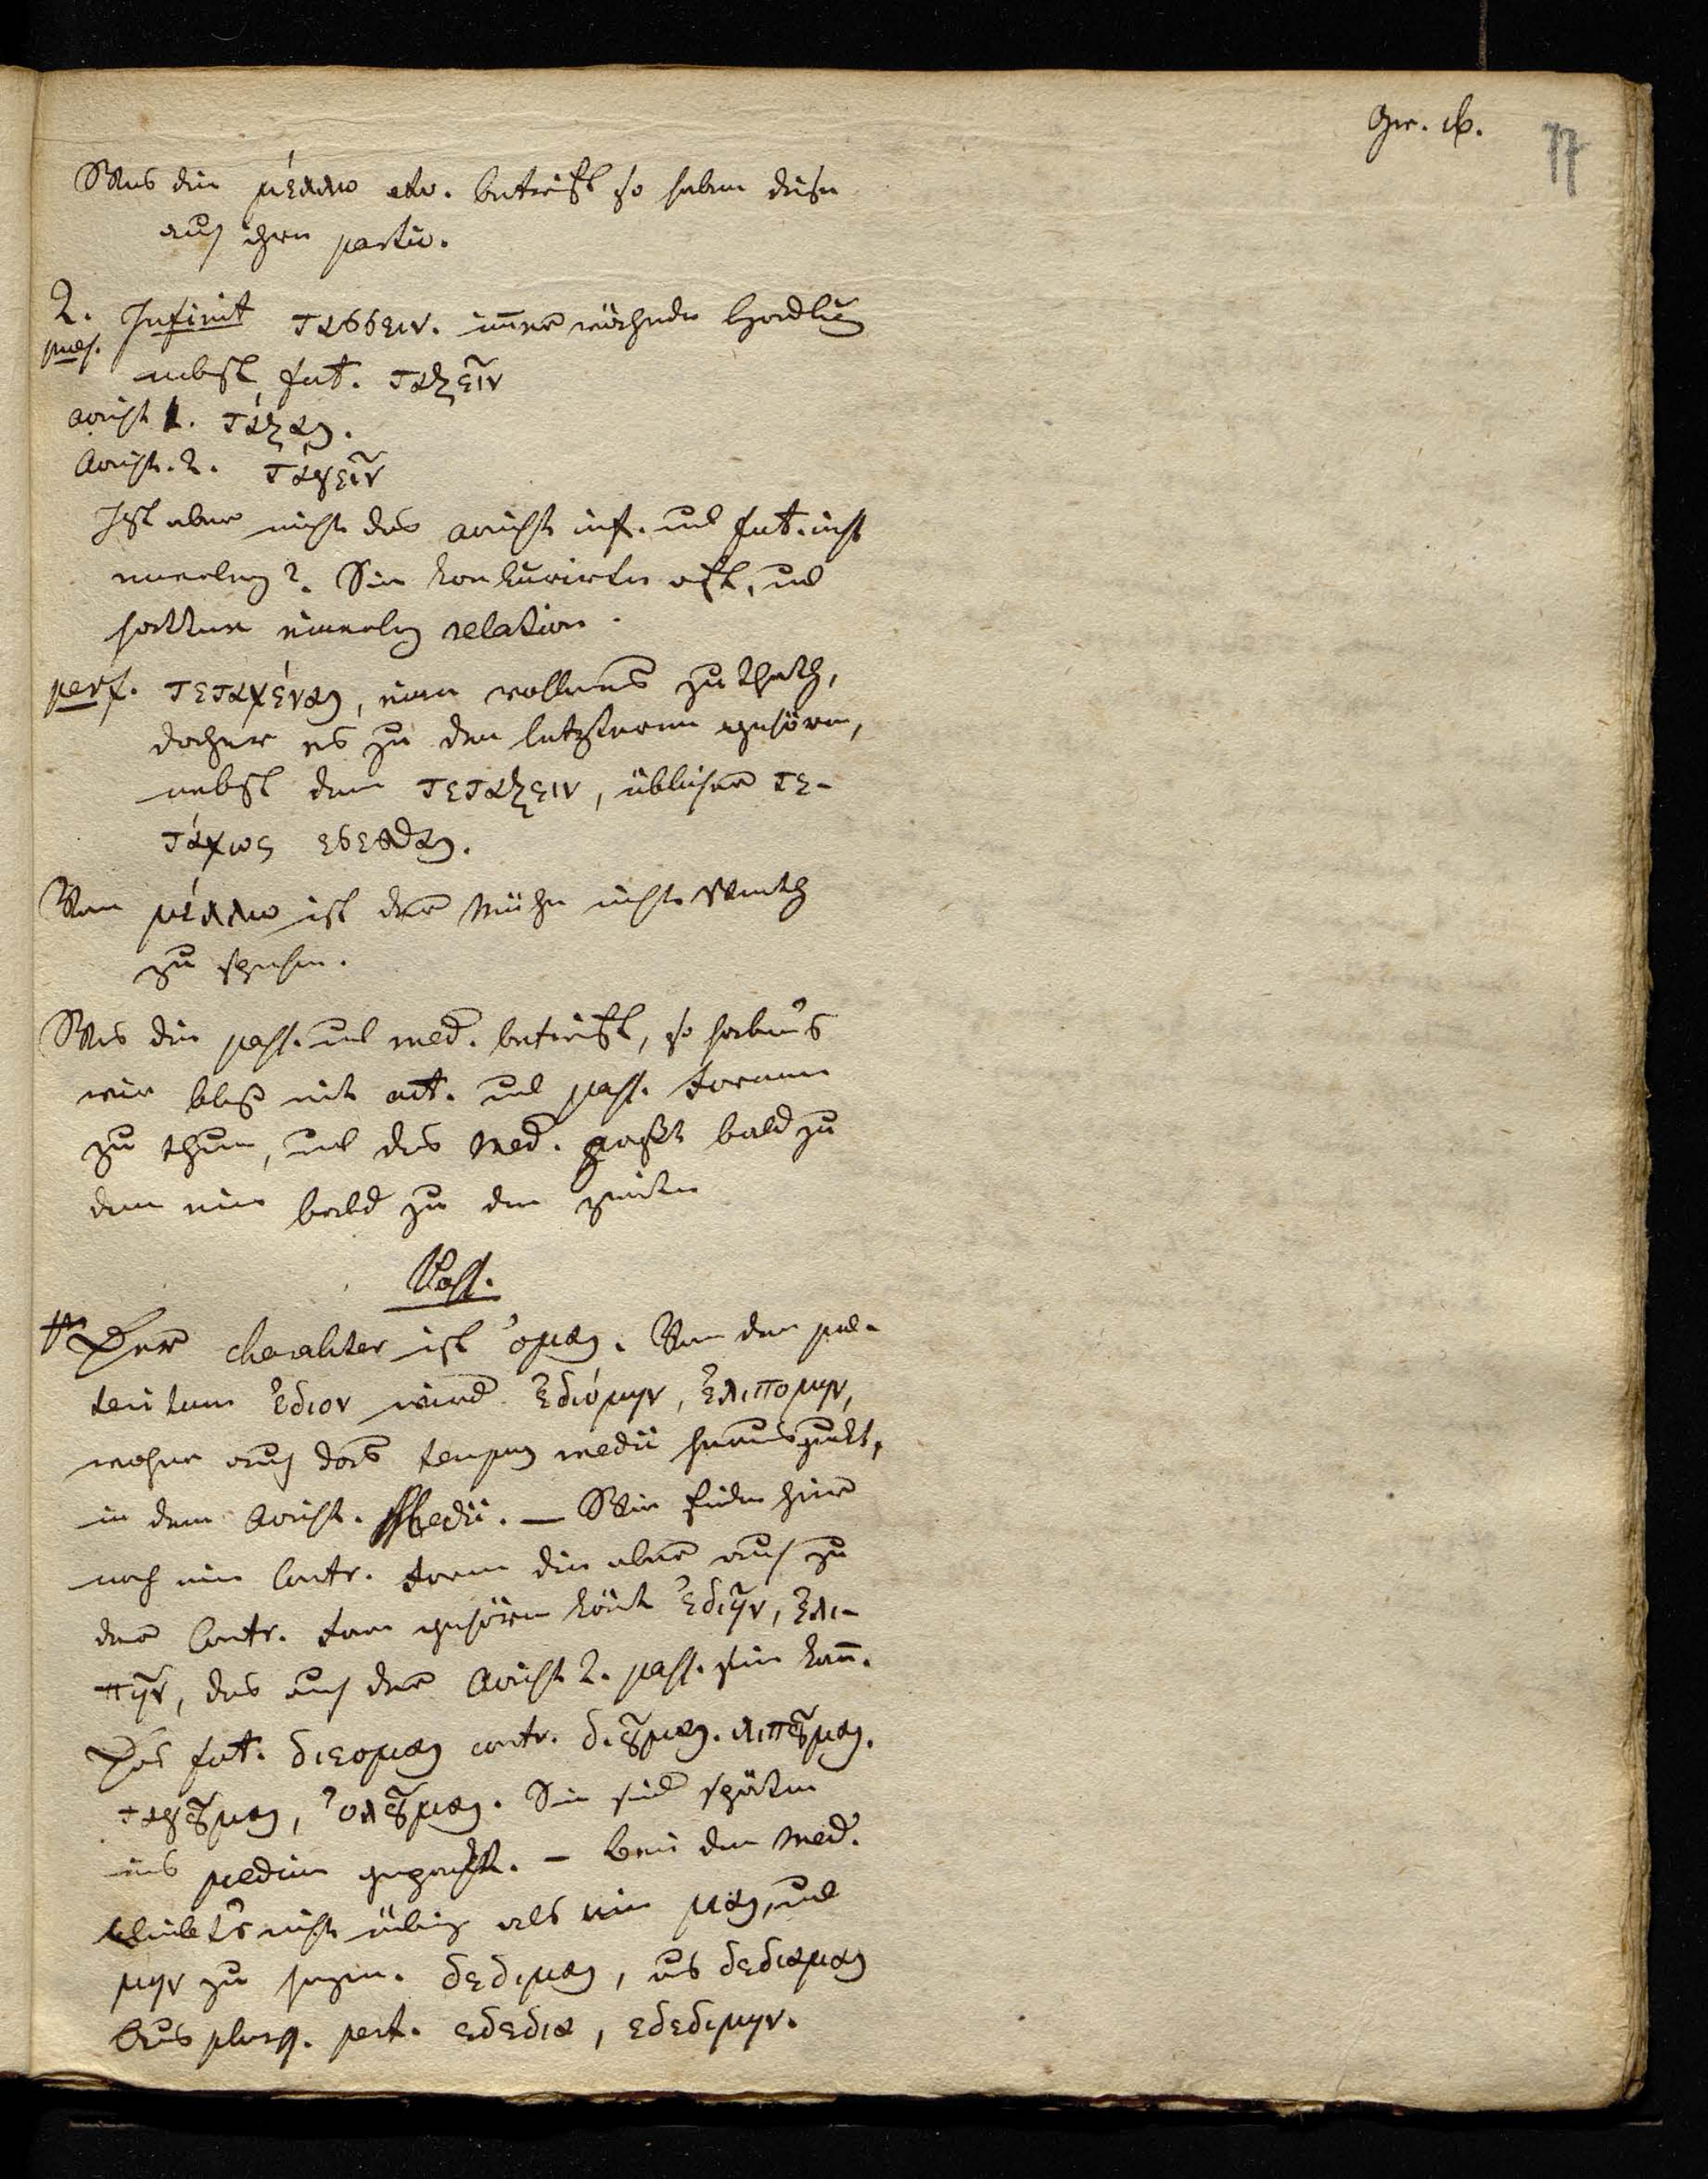 Gr. Gr.
77
Was die μέλλω etc. betrifft so haben diese
auch ihren partic.
2. Infinit τασσειν. immer währende Handlung
præs.
nebst fut. ταξεῖν
aorist 1. τάξαι.
Aorist. 2. ταγεῖν
Ist aber nicht das aorist inf. und fut. inf
einerley? Sie konkurirten oft, und
hatten einerley relation.
perf. τεταχέναι, eine vollendete That,
daher es zu den letzteren gehören,
nebst dem τεταξειν, üblicher τε-
τάχως εσεσθαι.
Von μέλλω ist der Mühe nicht werth
zu sprechen.
Was die pass. und med. betrifft, so haben's
wir bloß mit act. und pass. formen
zu thun, und das Med. paßt bald zu
dem ein bald zu dem zweiten
Pass.
Der charakter ist ὀμαι. Von dem præ-
teritum ἐδιον wird ἐδιόμην, ἐλιπομην,
woher auch das tempus medii
in dem Aorist. Medii. — Wir finden hier
noch eine Contr. form die aber auch zu
der Contr. form gehören könnte ἐδιῆν, ἐλι-
πῆν, das auch der Aorist 2. pass. sein kann.
Das fut. διεομαι contr. διȣ͂μαι. λιπȣ͂μαι.
ταγȣ͂μαι, ὀλȣ͂μαι. Sie sind später
ins medium gepaßt. — Bei dem Med.
bleibt's nicht übrig als ein μαι, und
μην zu setzen. δεδιμαι, aus δεδιαμαι
Aus plusq. perf. εδεδια, εδεδιμην.